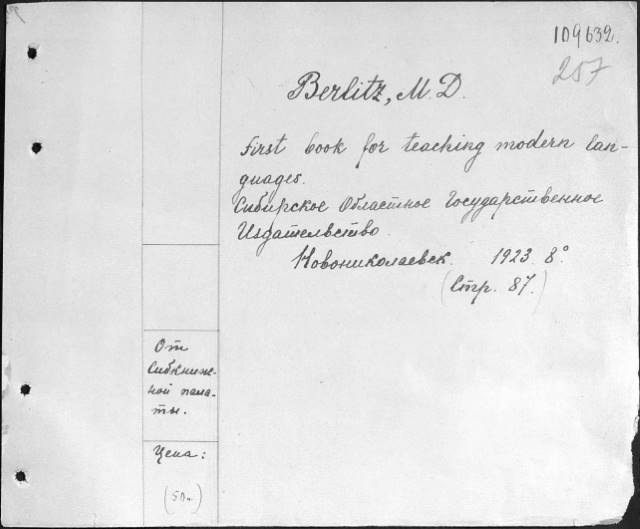 109632.
257
Berlitz, M. D.
First book for teaching modern lan-
guages.
Сибирское Областное Государственное
Издательство.
Новониколаевск. 1923. 8°.
(Стр. 87.)
От
Сибкниж-
ной пала-
ты.
Цена:
(50к)